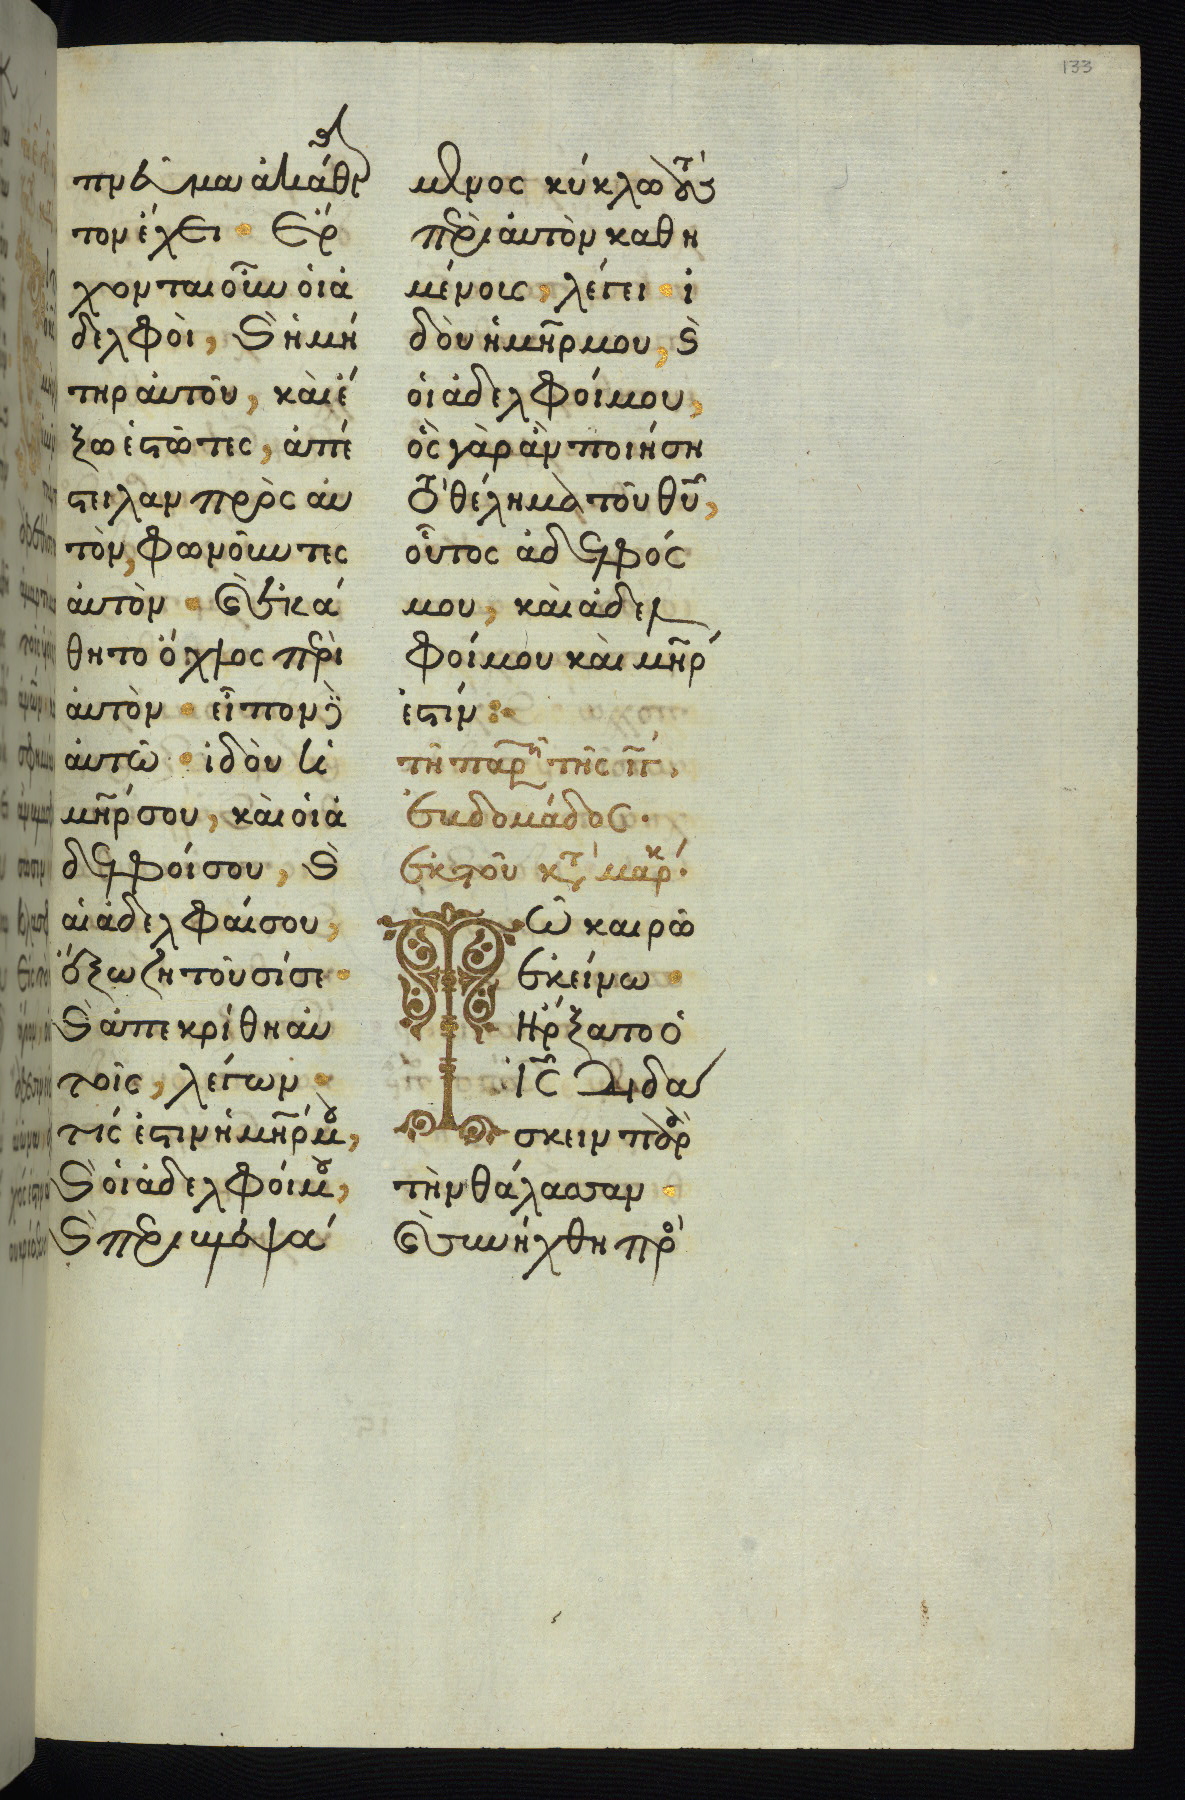 133
πνεῦμα ἀκάθαρ
τον ἔχει · Ἔρ
χονται οὖν οἱ ἀ
δελφοὶ, ϗ ἡ μή
τηρ αὐτοῦ, καὶ ἔ
ξω ἑστῶτες, ἀπέ
στειλαν πρὸς αὐ
τὸν, φωνοῦντες
αὐτὸν · ϗ ἐκά
θητο ὄχλος περὶ
αὐτὸν · εἶπον δὲ
αὐτῶ · ἰδοὺ ἡ
μῆρ σου, καὶ οἱ ἀ
δελφοί σου, ϗ
αἱ ἀδελφαί σου,
ἔξω ζητοῦσί σε ·
ϗ ἀπεκρίθη αὐ
τοῖς, λέγων ·
τίς ἐστιν ἡ μῆρ μου,
ϗ οἱ ἀδελφοί μου,
ϗ περιβλεψά
μενος κύκλω τοὺς
περὶ αὐτὸν καθη
μένους, λέγει · ἰ
δοὺ ἡ μῆρ μου, ϗ
οἱ ἀδελφοί μου,
ὃς γὰρ ἂν ποιήση
τὸ θέλημα τοῦ θῦ,
οὗτος ἀδελφός
μου, καὶ ἀδελ
φοί μου καὶ μῆρ
ἐστίν :·
τῆ παρ τῆς ιγ
ἑβδομάδος ·
ἐκ τοῦ κτ μαρκ ·
Τῶ καιρῶ
ἐκείνω ·
Ἤρξατο ὁ
ἰς διδα
σκειν παρὰ
τὴν θάλασσαν ·
ϗ συνήχθη προ